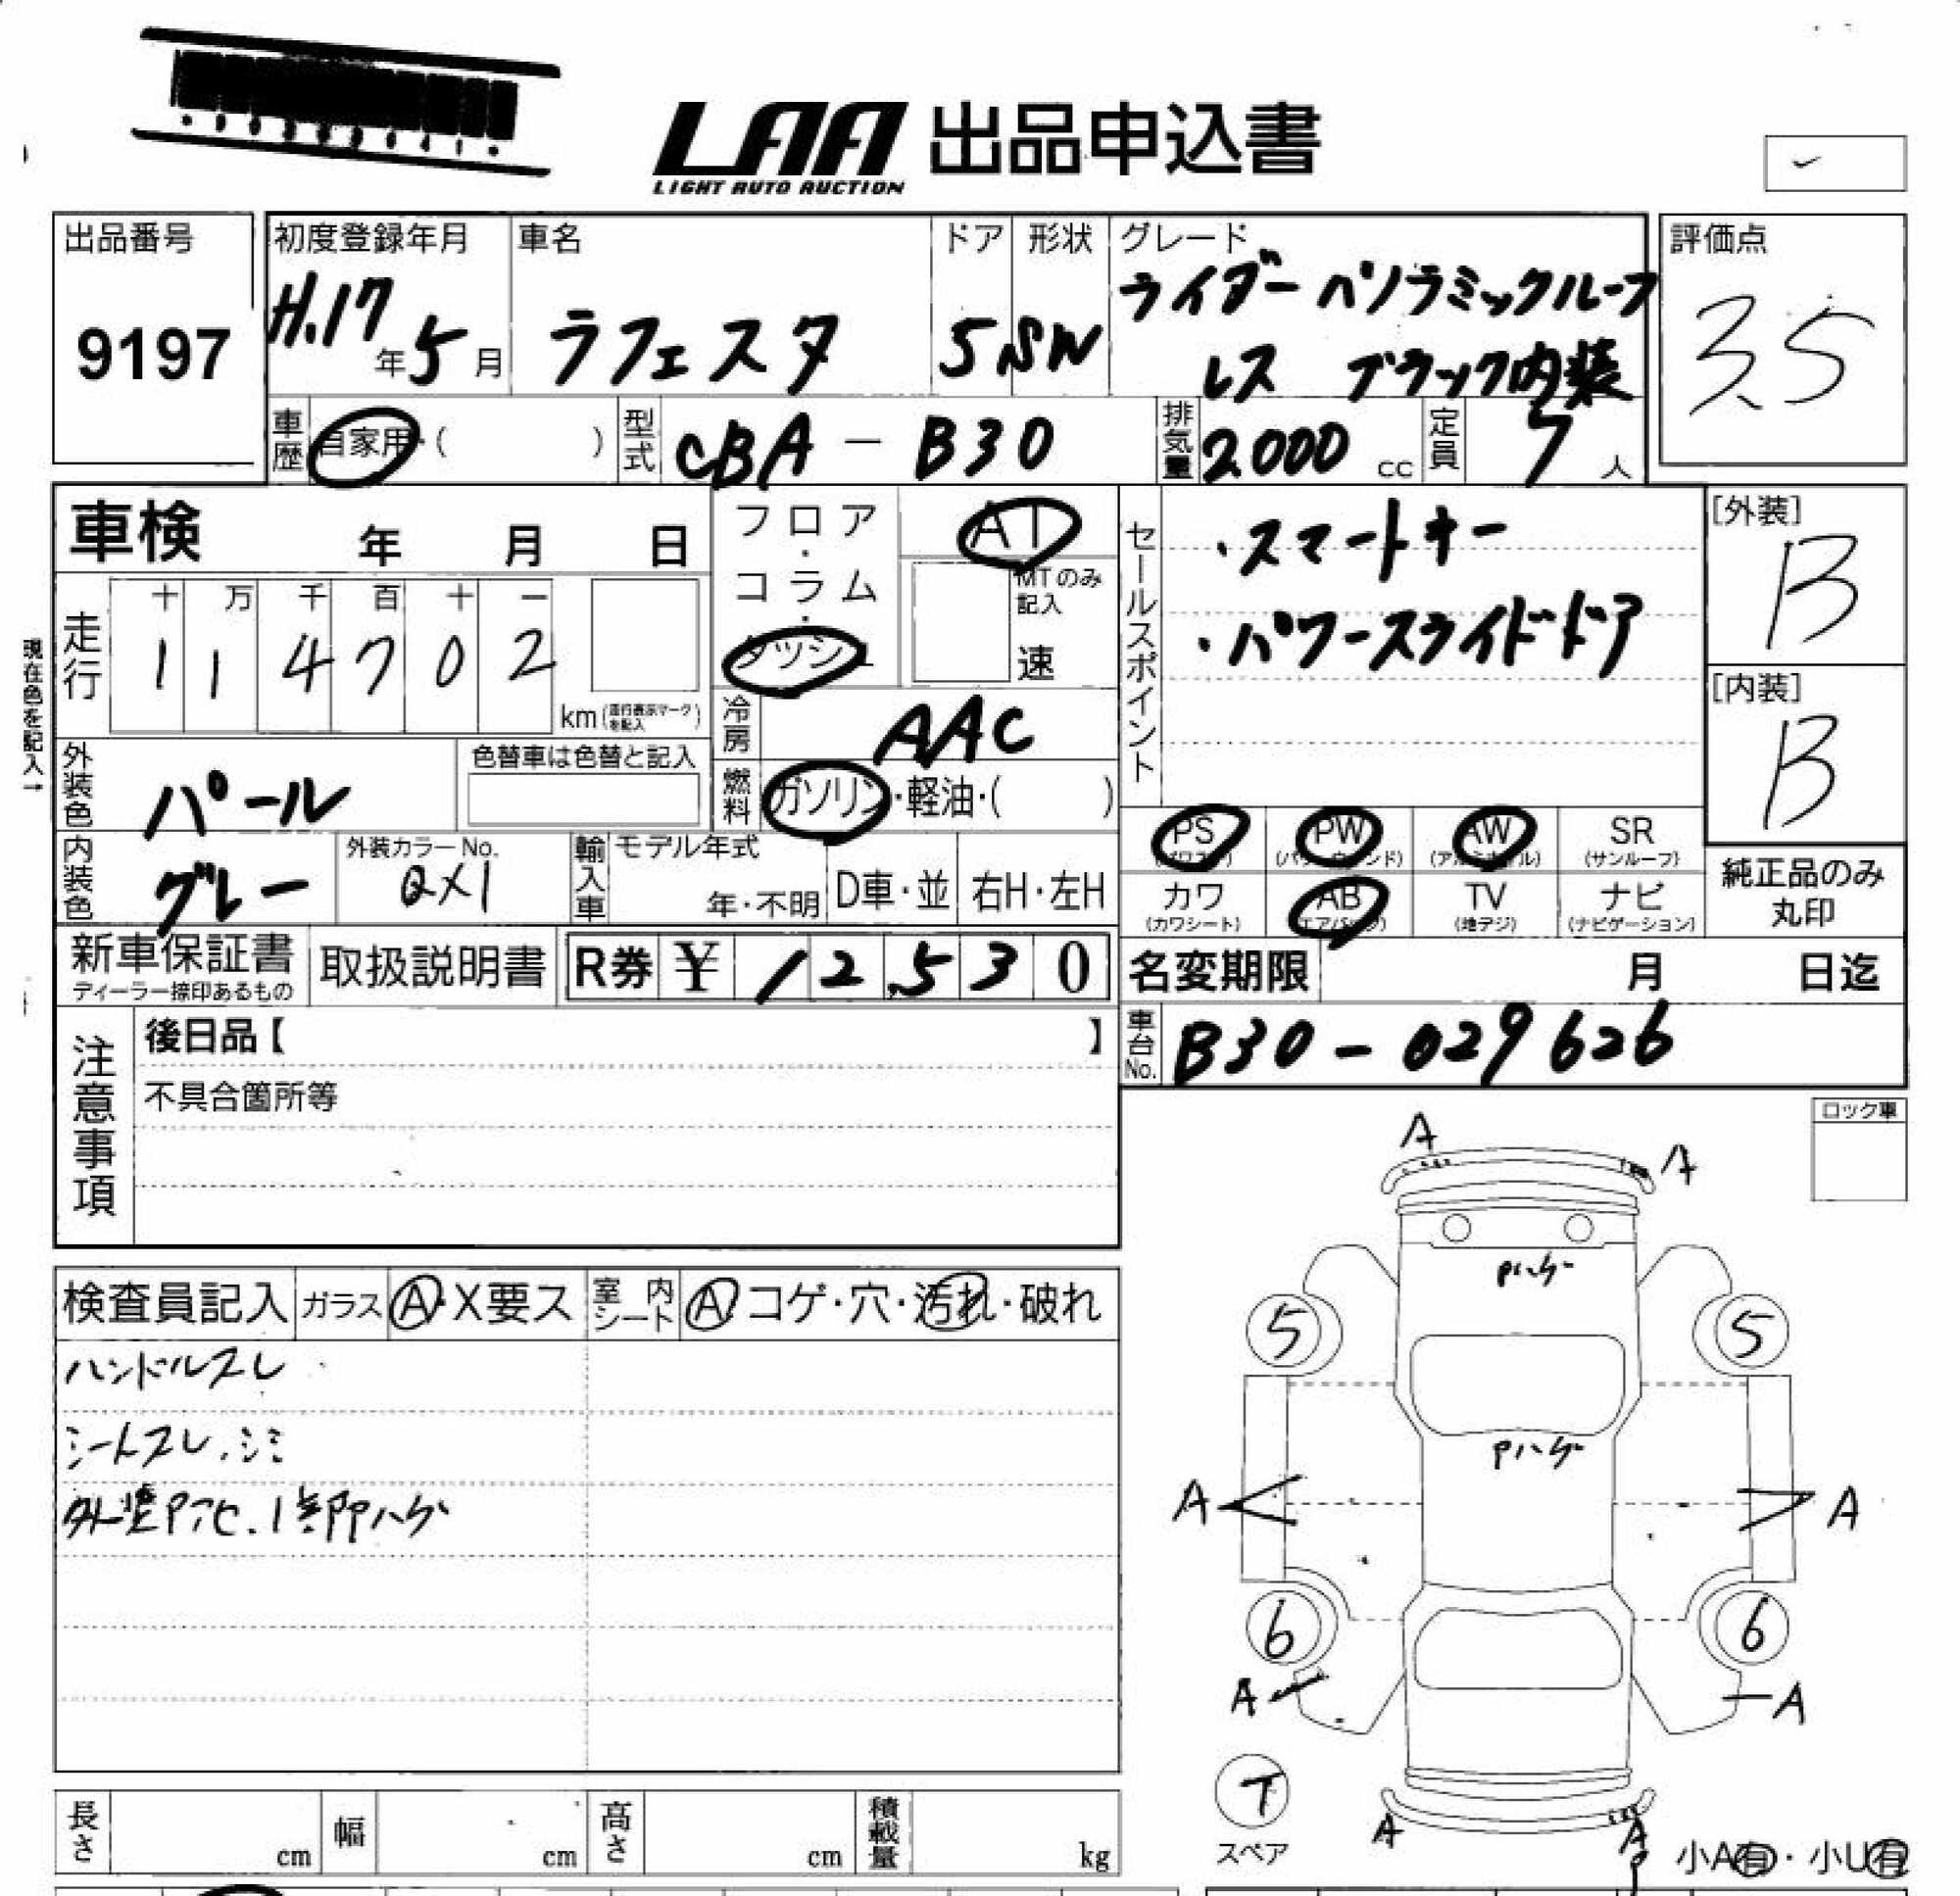 LAA 出品申込書
LIGHT AUTO AUCTION
出品番号
9197
初度登録年月
H.17年5月
車名
ラフェスタ
ドア
5
形状
SW
グレード
ライダー パノラミックルーフ
レス ブラック内装
評価点
3.5
車歴
自家用・( )
型式
CBA-B30
排気量
2000cc
定員
7人
車検 年 月 日
フロア・コラム・ダッシュ
AT
MTのみ記入
速
セールスポイント
・スマートキー
・パワースライドドア
[外装]
B
[内装]
B
現在色を記入→
走行
十 万 千 百 十 一
1 1 4 7 0 2
km(走行表示マークを記入)
冷房
AAC
燃料
ガソリン・軽油・( )
外装色
パール
色替車は色替と記入
内装色
グレー
外装カラーNo.
QX1
輸入車
モデル年式
年・不明
D車・並
右H・左H
PS
(パワステ)
PW
(パワーウィンド)
AW
(アルミホイル)
SR
(サンルーフ)
カワ
(カワシート)
AB
(エアバッグ)
TV
(地デジ)
ナビ
(ナビゲーション)
純正品のみ
丸印
新車保証書
ディーラー捺印あるもの
取扱説明書
R券 ¥ 12,530
名変期限 月 日迄
車台No.
B30-029626
注意事項
後日品【 】
不具合箇所等
ロック車
検査員記入
ガラス
A・X要ス
室内シート
A・コゲ・穴・汚れ・破れ
ハンドルスレ
シートスレ.シミ
外装Pアセ.1部Pハゲ
A
A
Pハゲ
5
5
Pハゲ
A
A
6
6
A
A
T
スペア
A
A
P
小A有・小U有
長さ cm
幅 cm
高さ cm
積載量 kg